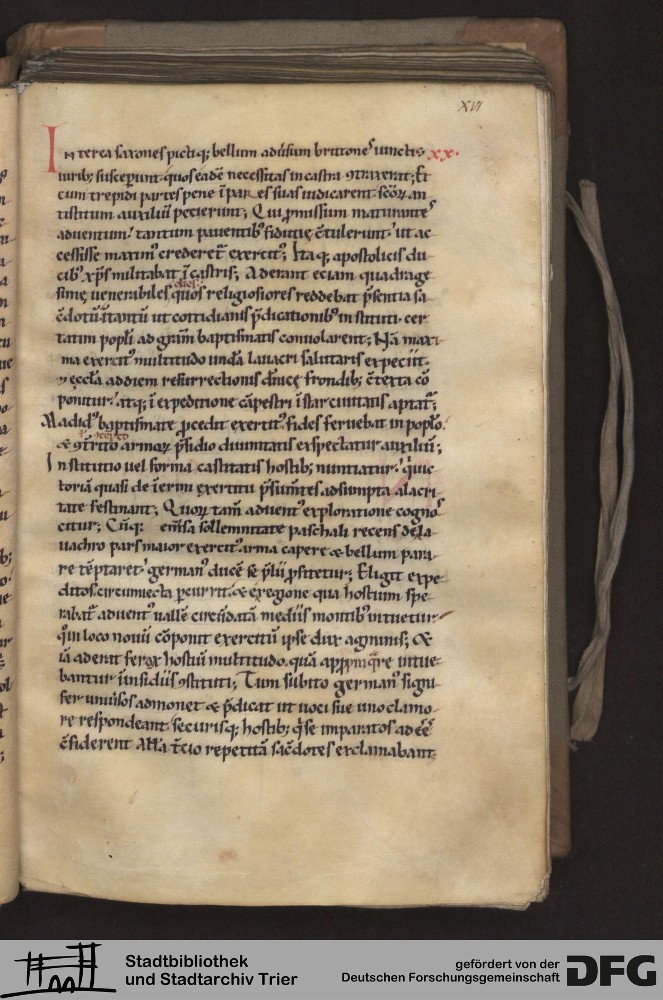 XVI
INterea saxones pictiq; bellum aduersum brittones iunctis xx.
uirib; susceperunt quos eadē necessitas in castra ꝯtraxerat; Et
cum trepidi partes pene ī par es suas iudicarent scōꝝ an
tistitum auxiliū petierunt; Qui ꝓmissum maturantes
aduentum tantum pauentib; fiducię ꝯtulerunt ut ac
cessisse maximꝰ crederet exercitꝰ; Itaq; apostolicis du
cib; xp̄s militabat ī castris; Aderant eciam quadrage
simę uenerabiles dies quos religiosiores reddebat p̄sentia sa
cerdotū ītantū ut cottidianis p̄dicationib; instituti cer
tatim popl̄i ad grām baptismatis conuolarent; Nā maxi
ma exercitꝰ multitudo undā lauacri salutaris expeciit.
⁊ ęccl̄a ad diem resurrectionis dn̄icę frondib; ꝯtexta cō
ponitur atq; ī expeditione cāpestri īstar ciuitatis aptat̄;
Madidꝰ baptismate ꝓcedit exercitꝰ fides feruebat in popl̄o.
& armoꝝ p̄sidio diuinitatis exspectatur auxiliū;
Institutio uel forma castitatis hostib; nuntiatur. qui uic
toriā quasi de inermi exercitu p̄sumentes adsumpta alacri
tate festinant; Quoꝝ tam̄ aduentꝰ exploratione cognos
citur; Cūq: emensa sollemnitate paschali recens de la
uachro pars maior exercitꝰ arma capere & bellum para
re tēptaret germanꝰ ducē se p̄lii ꝓfitetur; Eligit expe
ditos. circumiecta ꝑcurrit. & e regione qua hostium spe
rabat̄ aduentꝰ uallē circūdatā mediis montib; intuetur
quo in loco nouū cōponit exercitū ipse dux agminis; &
iā aderat ferox hostiū multitudo. quā appropinquare intue
bantur ī insidiis ꝯstituti; Tum subito germanꝰ signi
fer uniuersos admonet & p̄dicat ut uoci sue uno clamo
re respondeant securisq; hostib; qui se imparatos adeē
ꝯfiderent All̄a tercio repetitā sacerdotes exclamabant.
Stadtbibliothek
und Stadtarchiv Trier
gefördert von der
Deutschen Forschungsgemeinschaft
DFG